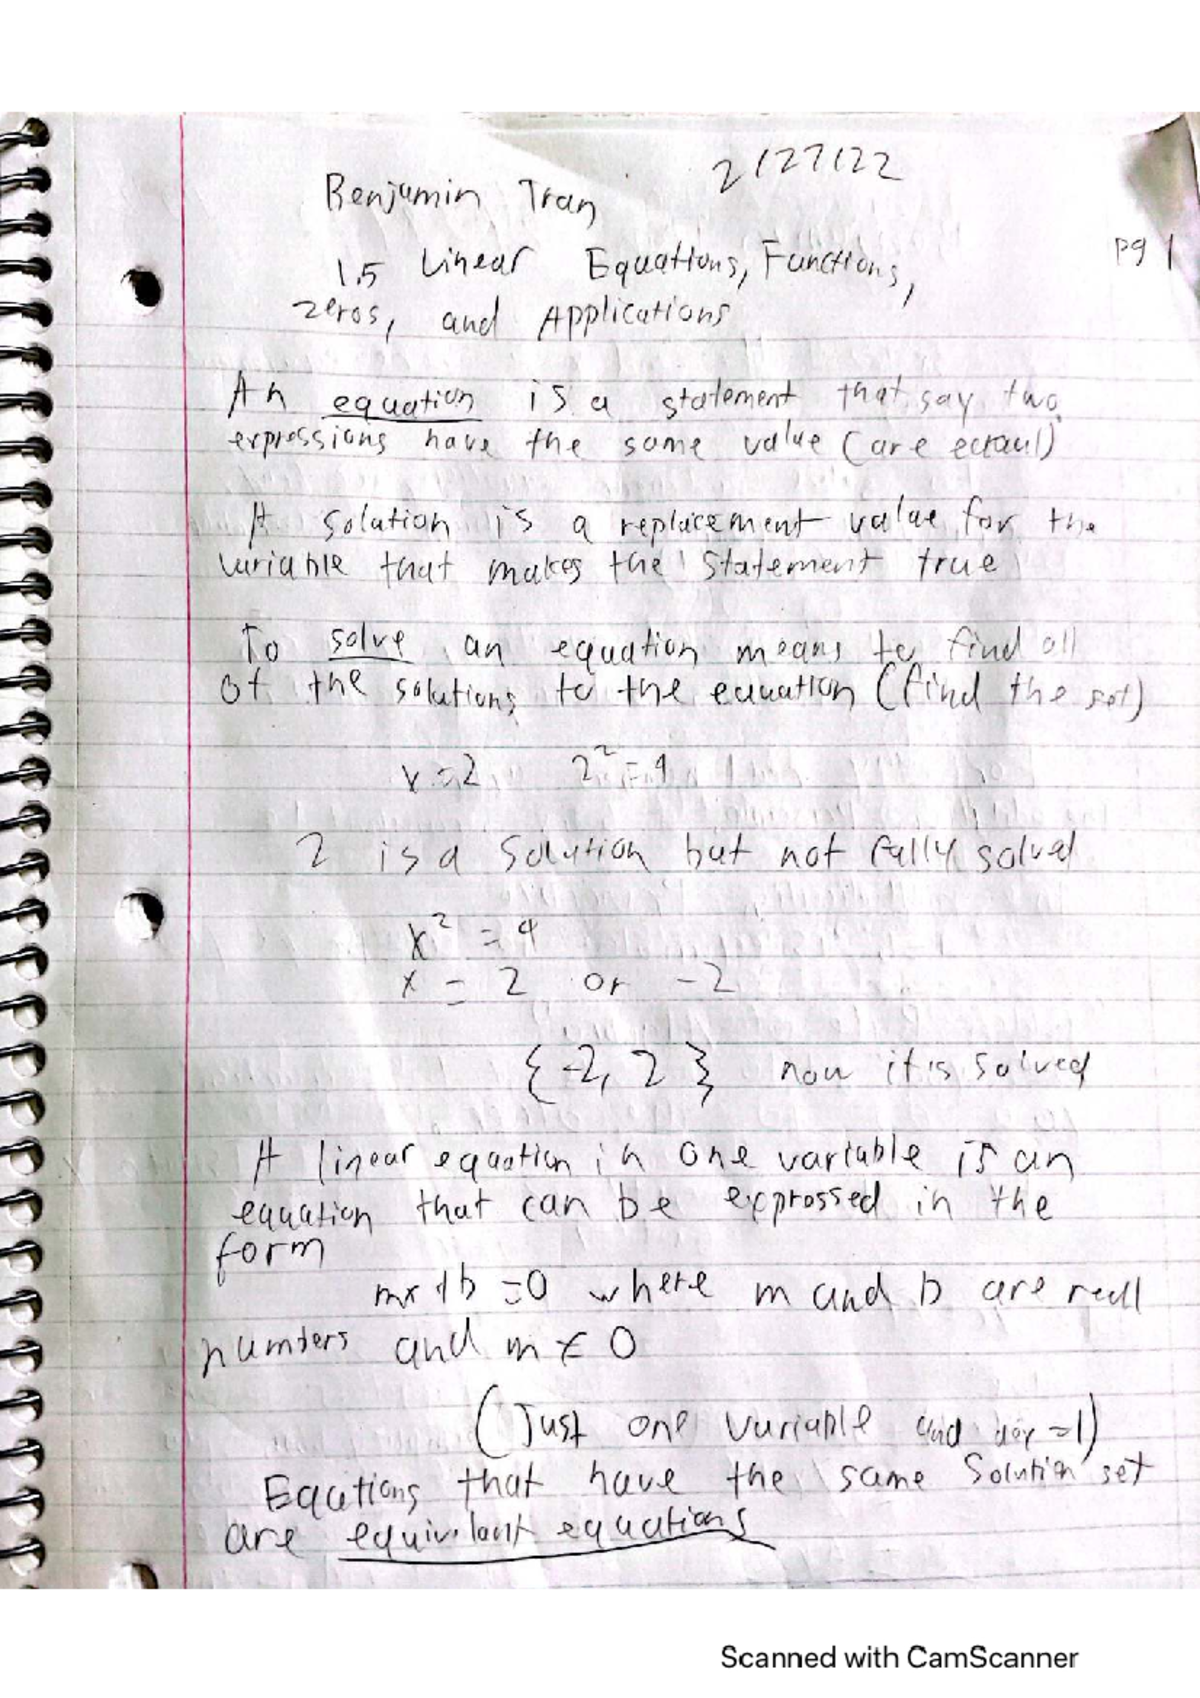 2/27/22
Benjamin Tran
pg 1
1.5 Linear Equations, Functions,
zeros, and Applications
An equation is a statement that say two
expressions have the same value (are ecraul)
A solution is a replacement value for the
variable that makes the statement true
To solve an equation means to find all
of the solutions to the equation (find the set)
x=2 2² = 4
2 is a solution but not fully solved
x² = 4
x = 2 or -2
{-2, 2} now it is solved
A linear equation in one variable is an
equation that can be expressed in the
form
mx+b=0 where m and b are reall
numbers and m ≠ 0
(Just one variable and =1)
Eqautions that have the same solution set
are equivilant equations
Scanned with CamScanner